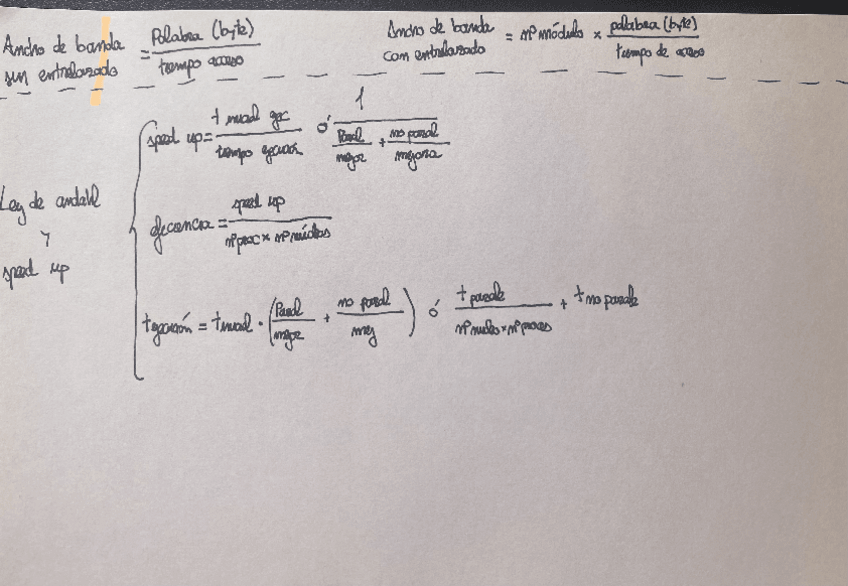 Ancho de banda sin entrelazado = Palabra (byte) / tiempo acceso
Ancho de banda con entrelazado = nº módulo × palabra (byte) / tiempo de acceso
Ley de amdahl y speed up
speed up = t inicial ejec / tiempo ejecución ó 1 / (Paral / mejor + no paral / mejora)
eficiencia = speed up / nº proc × nº núcleos
t ejecución = t inicial · (Paral / mejor + no paral / mej) ó t parale / nº nucleo × nº proces + t no parale